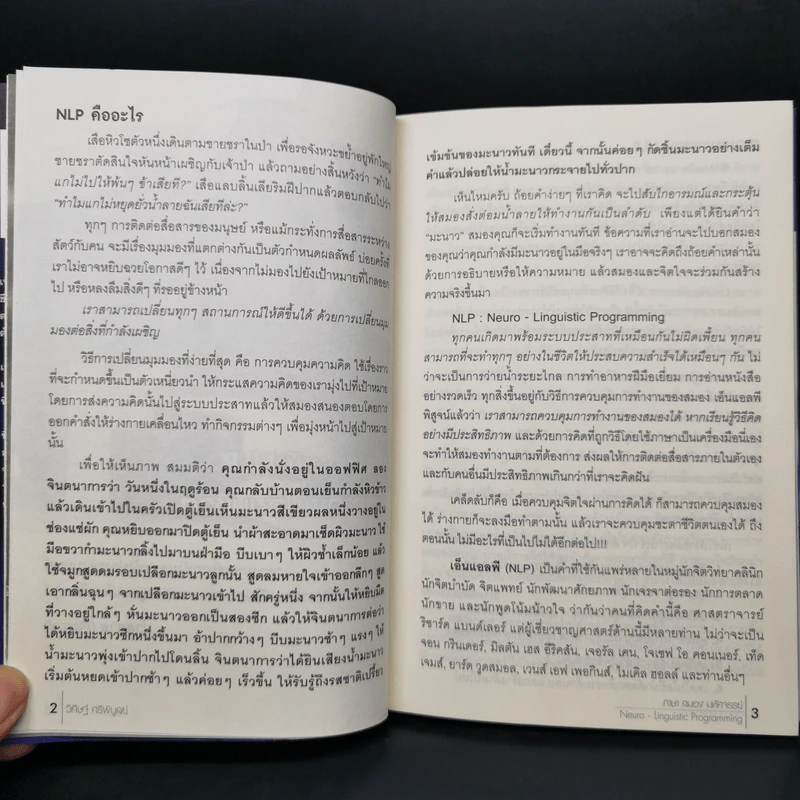 NLP คืออะไร
เสือหิวโซตัวหนึ่งเดินตามชายชราในป่า เพื่อรอจังหวะขย้ำอยู่พักใหญ่
ชายชราตัดสินใจหันหน้าเผชิญกับเจ้าป่า แล้วถามอย่างสิ้นหวังว่า "ทำไม
แกไม่ไปให้พ้นๆ ข้าเสียที?" เสือแลบลิ้นเลียริมฝีปากแล้วตอบกลับไปว่า
"ทำไมแกไม่หยุดยั่วน้ำลายฉันเสียทีล่ะ?"
ทุกๆ การติดต่อสื่อสารของมนุษย์ หรือแม้กระทั่งการสื่อสารระหว่าง
สัตว์กับคน จะมีเรื่องมุมมองที่แตกต่างกันเป็นตัวกำหนดผลลัพธ์ บ่อยครั้งที่
เราไม่อาจหยิบฉวยโอกาสดีๆ ไว้ เนื่องจากไม่มองไปยังเป้าหมายที่ไกลออก
ไป หรือหลงลืมสิ่งดีๆ ที่รออยู่ข้างหน้า
เราสามารถเปลี่ยนทุกๆ สถานการณ์ให้ดีขึ้นได้ ด้วยการเปลี่ยนมุม
มองต่อสิ่งที่กำลังเผชิญ
วิธีการเปลี่ยนมุมมองที่ง่ายที่สุด คือ การควบคุมความคิด ใช้เรื่องราว
ที่จะกำหนดขึ้นเป็นตัวเหนี่ยวนำ ให้กระแสความคิดของเรามุ่งไปที่เป้าหมาย
โดยการส่งความคิดนั้นไปสู่ระบบประสาทแล้วให้สมองสนองตอบโดยการ
ออกคำสั่งให้ร่างกายเคลื่อนไหว ทำกิจกรรมต่างๆ เพื่อมุ่งหน้าไปสู่เป้าหมาย
นั้น
เพื่อให้เห็นภาพ สมมติว่า คุณกำลังนั่งอยู่ในออฟฟิศ ลอง
จินตนาการว่า วันหนึ่งในฤดูร้อน คุณกลับบ้านตอนเย็นกำลังหิวข้าว
แล้วเดินเข้าไปในครัวเปิดตู้เย็นเห็นมะนาวสีเขียวผลหนึ่งวางอยู่ใน
ช่องแช่ผัก คุณหยิบออกมาปิดตู้เย็น นำผ้าสะอาดมาเช็ดผิวมะนาว ใช้
มือขวากำมะนาวกลิ้งไปมาบนฝ่ามือ บีบเบาๆ ให้ผิวช้ำเล็กน้อย แล้ว
ใช้จมูกสูดดมรอบเปลือกมะนาวลูกนั้น สูดลมหายใจเข้าออกลึกๆ สูด
เอากลิ่นฉุนๆ จากเปลือกมะนาวเข้าไป สักครู่หนึ่ง จากนั้นให้หยิบมีด
ที่วางอยู่ใกล้ๆ หั่นมะนาวออกเป็นสองซีก แล้วให้จินตนาการต่อว่า
ได้หยิบมะนาวซีกหนึ่งขึ้นมา อ้าปากกว้างๆ บีบมะนาวช้าๆ แรงๆ ให้
น้ำมะนาวพุ่งเข้าปากไปโดนลิ้น จินตนาการว่าได้ยินเสียงน้ำมะนาว
เริ่มต้นหยดเข้าปากช้าๆ แล้วค่อยๆ เร็วขึ้น ให้รับรู้ถึงรสชาติเปรี้ยว
2 วิศิษฐ์ ศรีพิบูลย์
เข้มข้นของมะนาวทันที เดี๋ยวนี้ จากนั้นค่อยๆ กัดชิ้นมะนาวอย่างเต็ม
คำแล้วปล่อยให้น้ำมะนาวกระจายไปทั่วปาก
เห็นไหมครับ ถ้อยคำง่ายๆ ที่เราคิด จะไปสับไกอารมณ์และกระตุ้น
ให้สมองสั่งต่อมน้ำลายให้ทำงานกันเป็นลำดับ เพียงแต่ได้ยินคำว่า
"มะนาว" สมองคุณก็จะเริ่มทำงานทันที ข้อความที่เราอ่านจะไปบอกสมอง
ของคุณว่าคุณกำลังมีมะนาวอยู่ในมือจริงๆ เราอาจจะคิดถึงถ้อยคำเหล่านั้น
ด้วยการอธิบายหรือให้ความหมาย แล้วสมองและจิตใจจะร่วมกันสร้าง
ความจริงขึ้นมา
NLP : Neuro - Linguistic Programming
ทุกคนเกิดมาพร้อมระบบประสาทที่เหมือนกันไม่ผิดเพี้ยน ทุกคน
สามารถที่จะทำทุกๆ อย่างในชีวิตให้ประสบความสำเร็จได้เหมือนๆ กัน ไม่
ว่าจะเป็นการว่ายน้ำระยะไกล การทำอาหารฝีมือเยี่ยม การอ่านหนังสือ
อย่างรวดเร็ว ทุกสิ่งขึ้นอยู่กับวิธีการควบคุมการทำงานของสมอง เอ็นแอลพี
พิสูจน์แล้วว่า เราสามารถควบคุมการทำงานของสมองได้ หากเรียนรู้วิธีคิด
อย่างมีประสิทธิภาพ และด้วยการคิดที่ถูกวิธีโดยใช้ภาษาเป็นเครื่องมือนี่เอง
จะทำให้สมองทำงานตามที่ต้องการ ส่งผลให้การติดต่อสื่อสารภายในตัวเอง
และกับคนอื่นมีประสิทธิภาพเกินกว่าที่เราจะคิดฝัน
เคล็ดลับก็คือ เมื่อควบคุมจิตใจผ่านการคิดได้ ก็สามารถควบคุมสมอง
ได้ ร่างกายก็จะลงมือทำตามนั้น แล้วเราจะควบคุมชะตาชีวิตตนเองได้ ถึง
ตอนนั้น ไม่มีอะไรที่เป็นไปไม่ได้อีกต่อไป!!!
เอ็นแอลพี (NLP) เป็นคำที่ใช้กันแพร่หลายในหมู่นักจิตวิทยาคลินิก
นักจิตบำบัด จิตแพทย์ นักพัฒนาศักยภาพ นักเจรจาต่อรอง นักการตลาด
นักขาย และนักพูดโน้มน้าวใจ ว่ากันว่าคนที่คิดคำนี้คือ ศาสตราจารย์
ริชาร์ด แบนด์เลอร์ แต่ผู้เชี่ยวชาญศาสตร์ด้านนี้มีหลายท่าน ไม่ว่าจะเป็น
จอน กรินเดอร์, มิลตัน เฮส อีริคสัน, เจอรัล เคน, โจเซฟ โอ คอนเนอร์, เท็ด
เจมส์, ยาร์ด วูดสมอล, เวนส์ เอฟ เพอกินส์, ไมเคิล ฮอลล์ และท่านอื่นๆ
ภาษา สมอง มหัศจรรย์
Neuro - Linguistic Programming 3